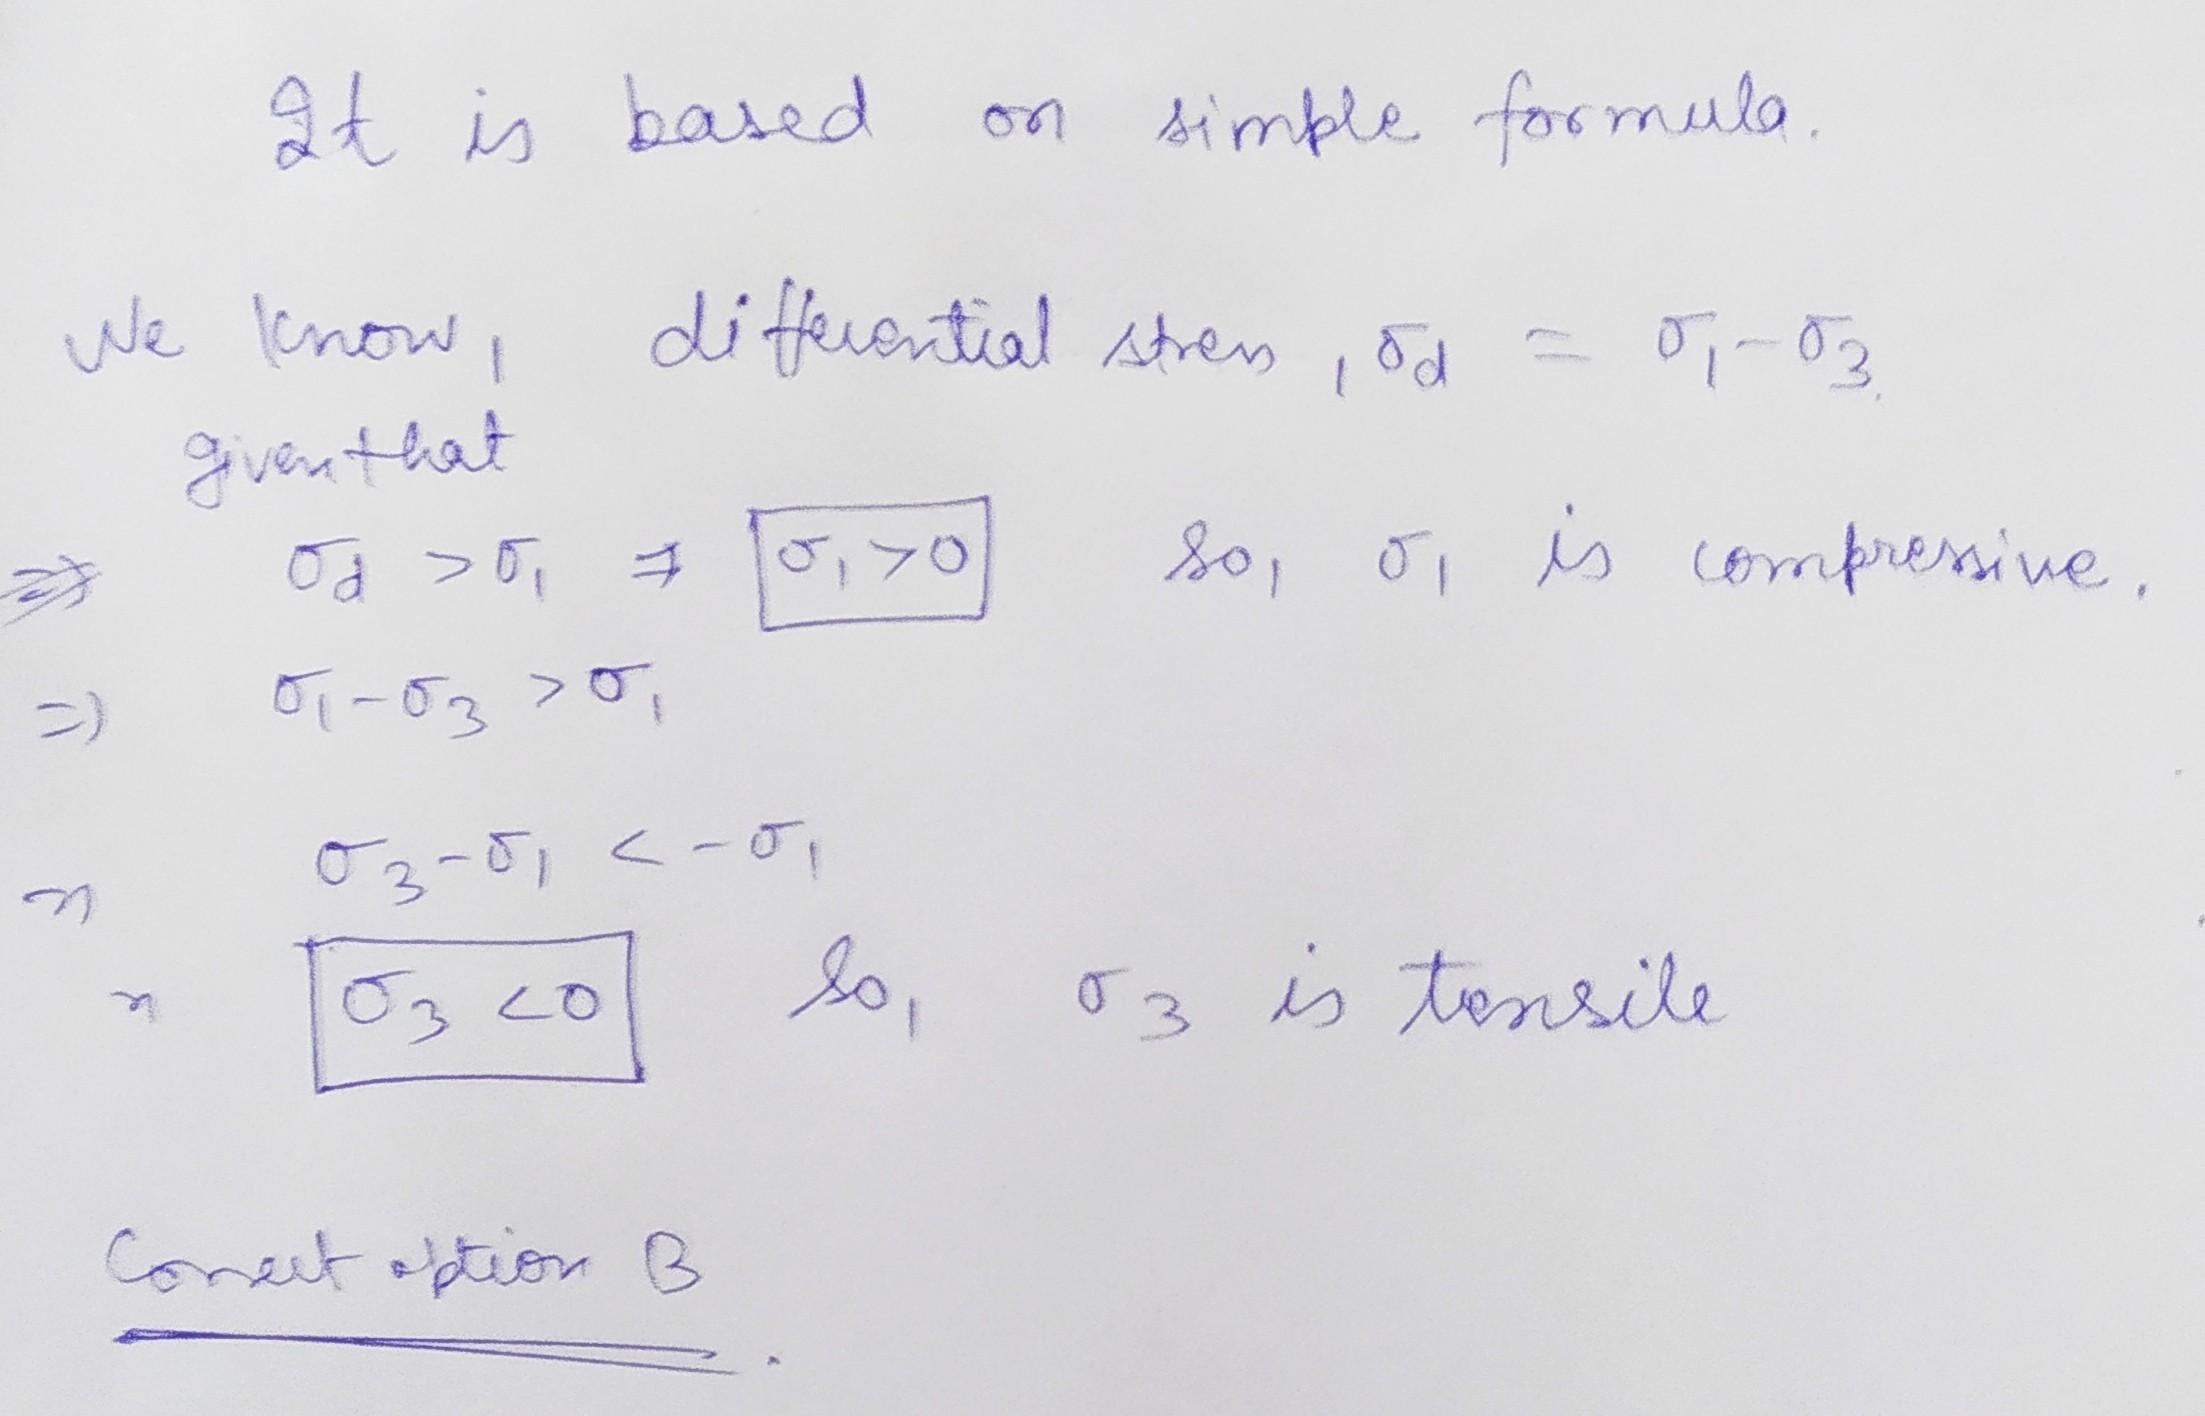 It is based on simple formula.
We know, differential stress, σd = σ1-σ3.
given that
σd > σ1 ⇒ σ1>0 So, σ1 is compressive.
⇒ σ1-σ3 > σ1
⇒ σ3-σ1 < -σ1
⇒ σ3 <0 So, σ3 is tensile
Correct option B.